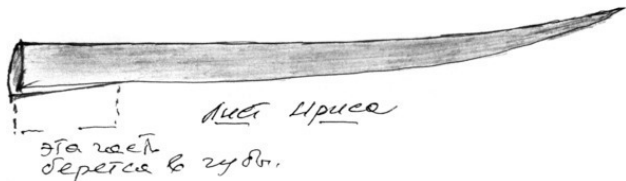 лист ириса
эта часть
берется в губы.